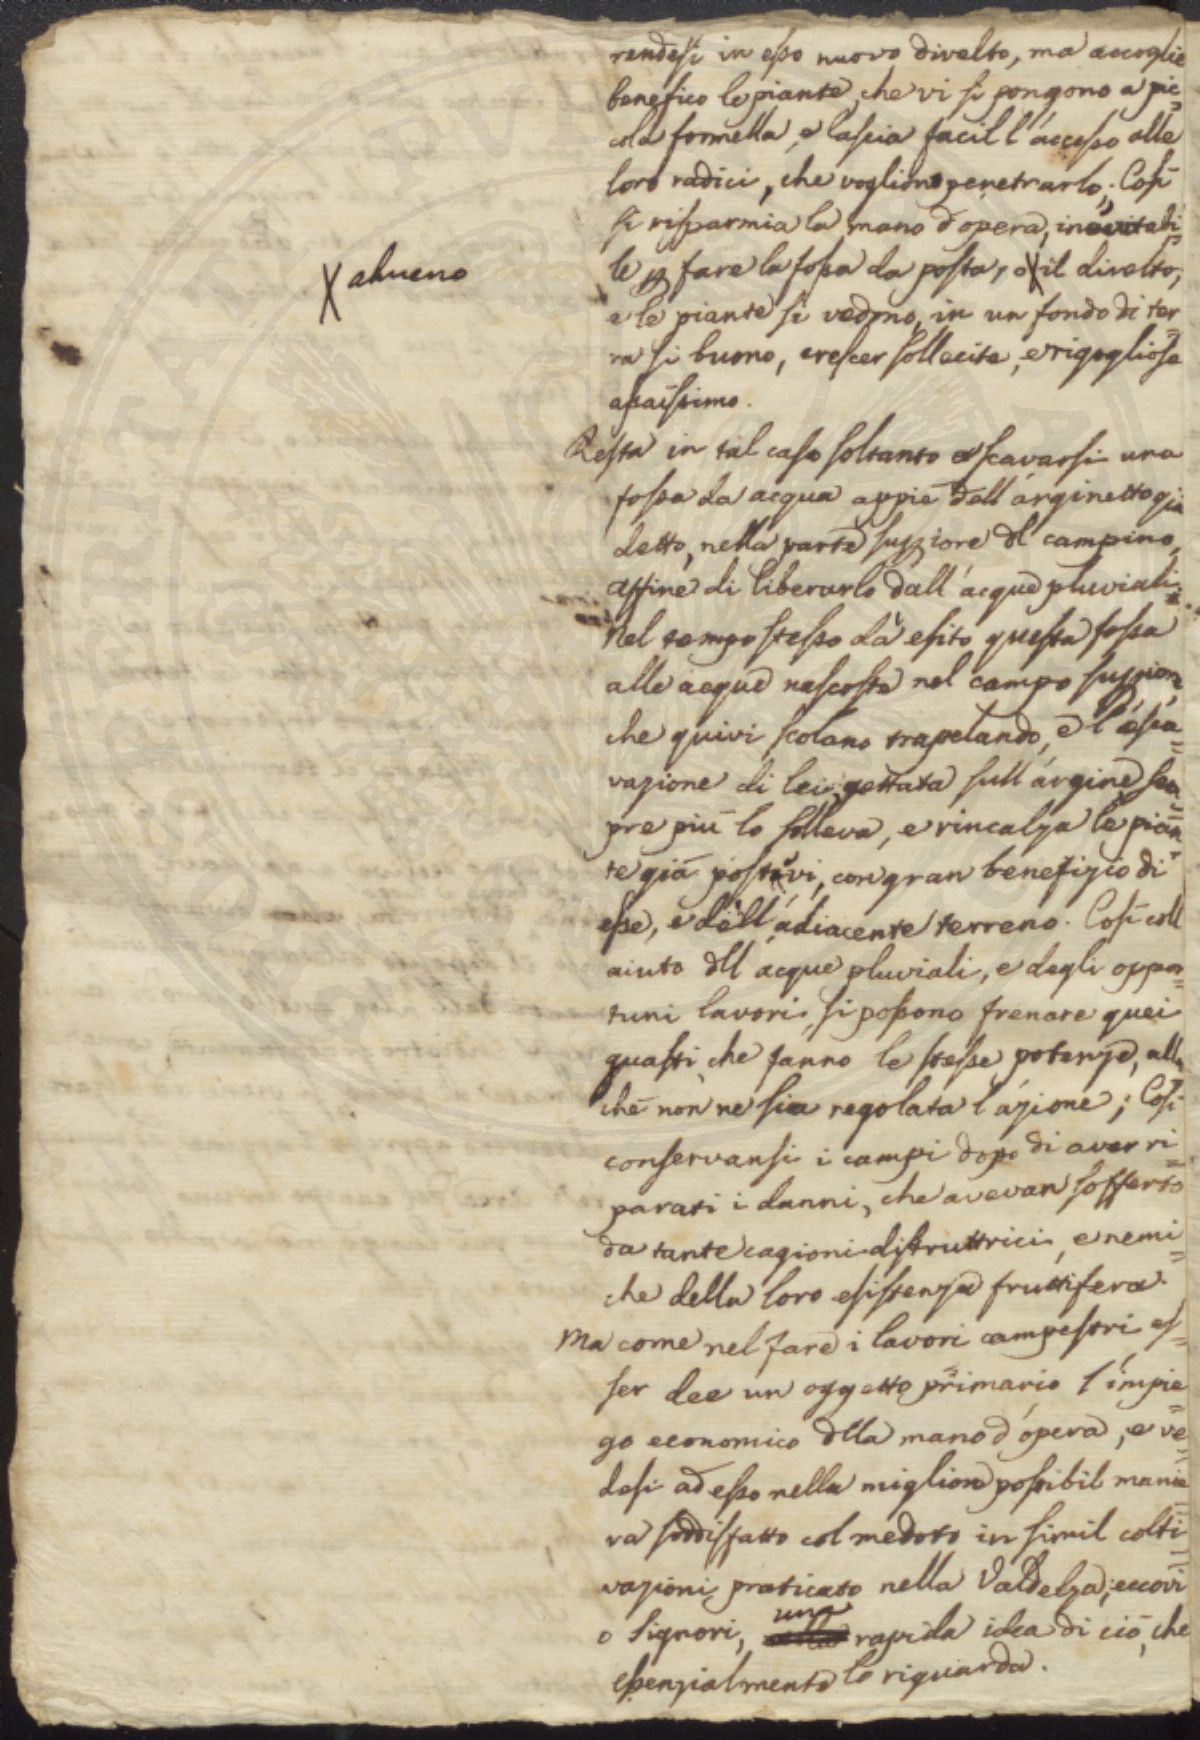 rendesi in esso nuovo divelto, ma accoglie
benefico le piante, che vi si pongono a pic=
cola formella, e lascia facil l'accesso alle
loro radici, che vogliono penetrarlo; Così
si risparmia la mano d'opera, inevitabi=
X ahueno
le p fare la fossa da posta, o X il divelto;
e le piante si vedono, in un fondo di ter=
ra sì buono, crescer sollecite, e rigogliose
assaissimo.
Resta in tal caso soltanto a scavarsi una
fossa da acqua appiè dell'arginetto già
detto, nella parte supiore dl campino,
affine di liberarlo dall'acque pluviali.
Nel tempo stesso dà esito questa fossa
alle acque nascoste nel campo supiore,
che quivi scolano trapelando, e l'esca=
vazione di lei gettata sull'argine sem=
pre più lo solleva, e rincalza le pian=
te già postevi, con gran benefizio di
esse, e dell'adiacente terreno. Così coll
aiuto dll'acque pluviali, e degli oppor=
tuni lavori, si possono frenare quei
guasti che fanno le stesse potenze, allor
chè non ne sia regolata l'azione; Così
conservansi i campi dopo di aver ri=
parati i danni, che avevan sofferto
da tante cagioni distruttrici, e nemi=
che della loro esistenza fruttifera.
Ma come nel fare i lavori campestri es=
ser dee un oggetto primario l'impie=
go economico dlla mano d'opera, e ve=
desi ad esso nella miglior possibil manie=
ra soddisfatto col medoto in simil colti=
vazioni praticato nella Valdelsa; eccovi
o Signori, una rapida idea di ciò, che
essenzialmente lo riguarda.